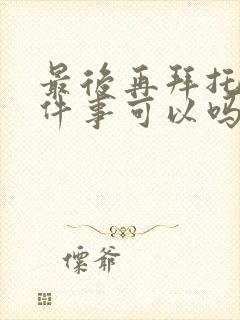 最後再拜托
件事可以嗎
慄爺